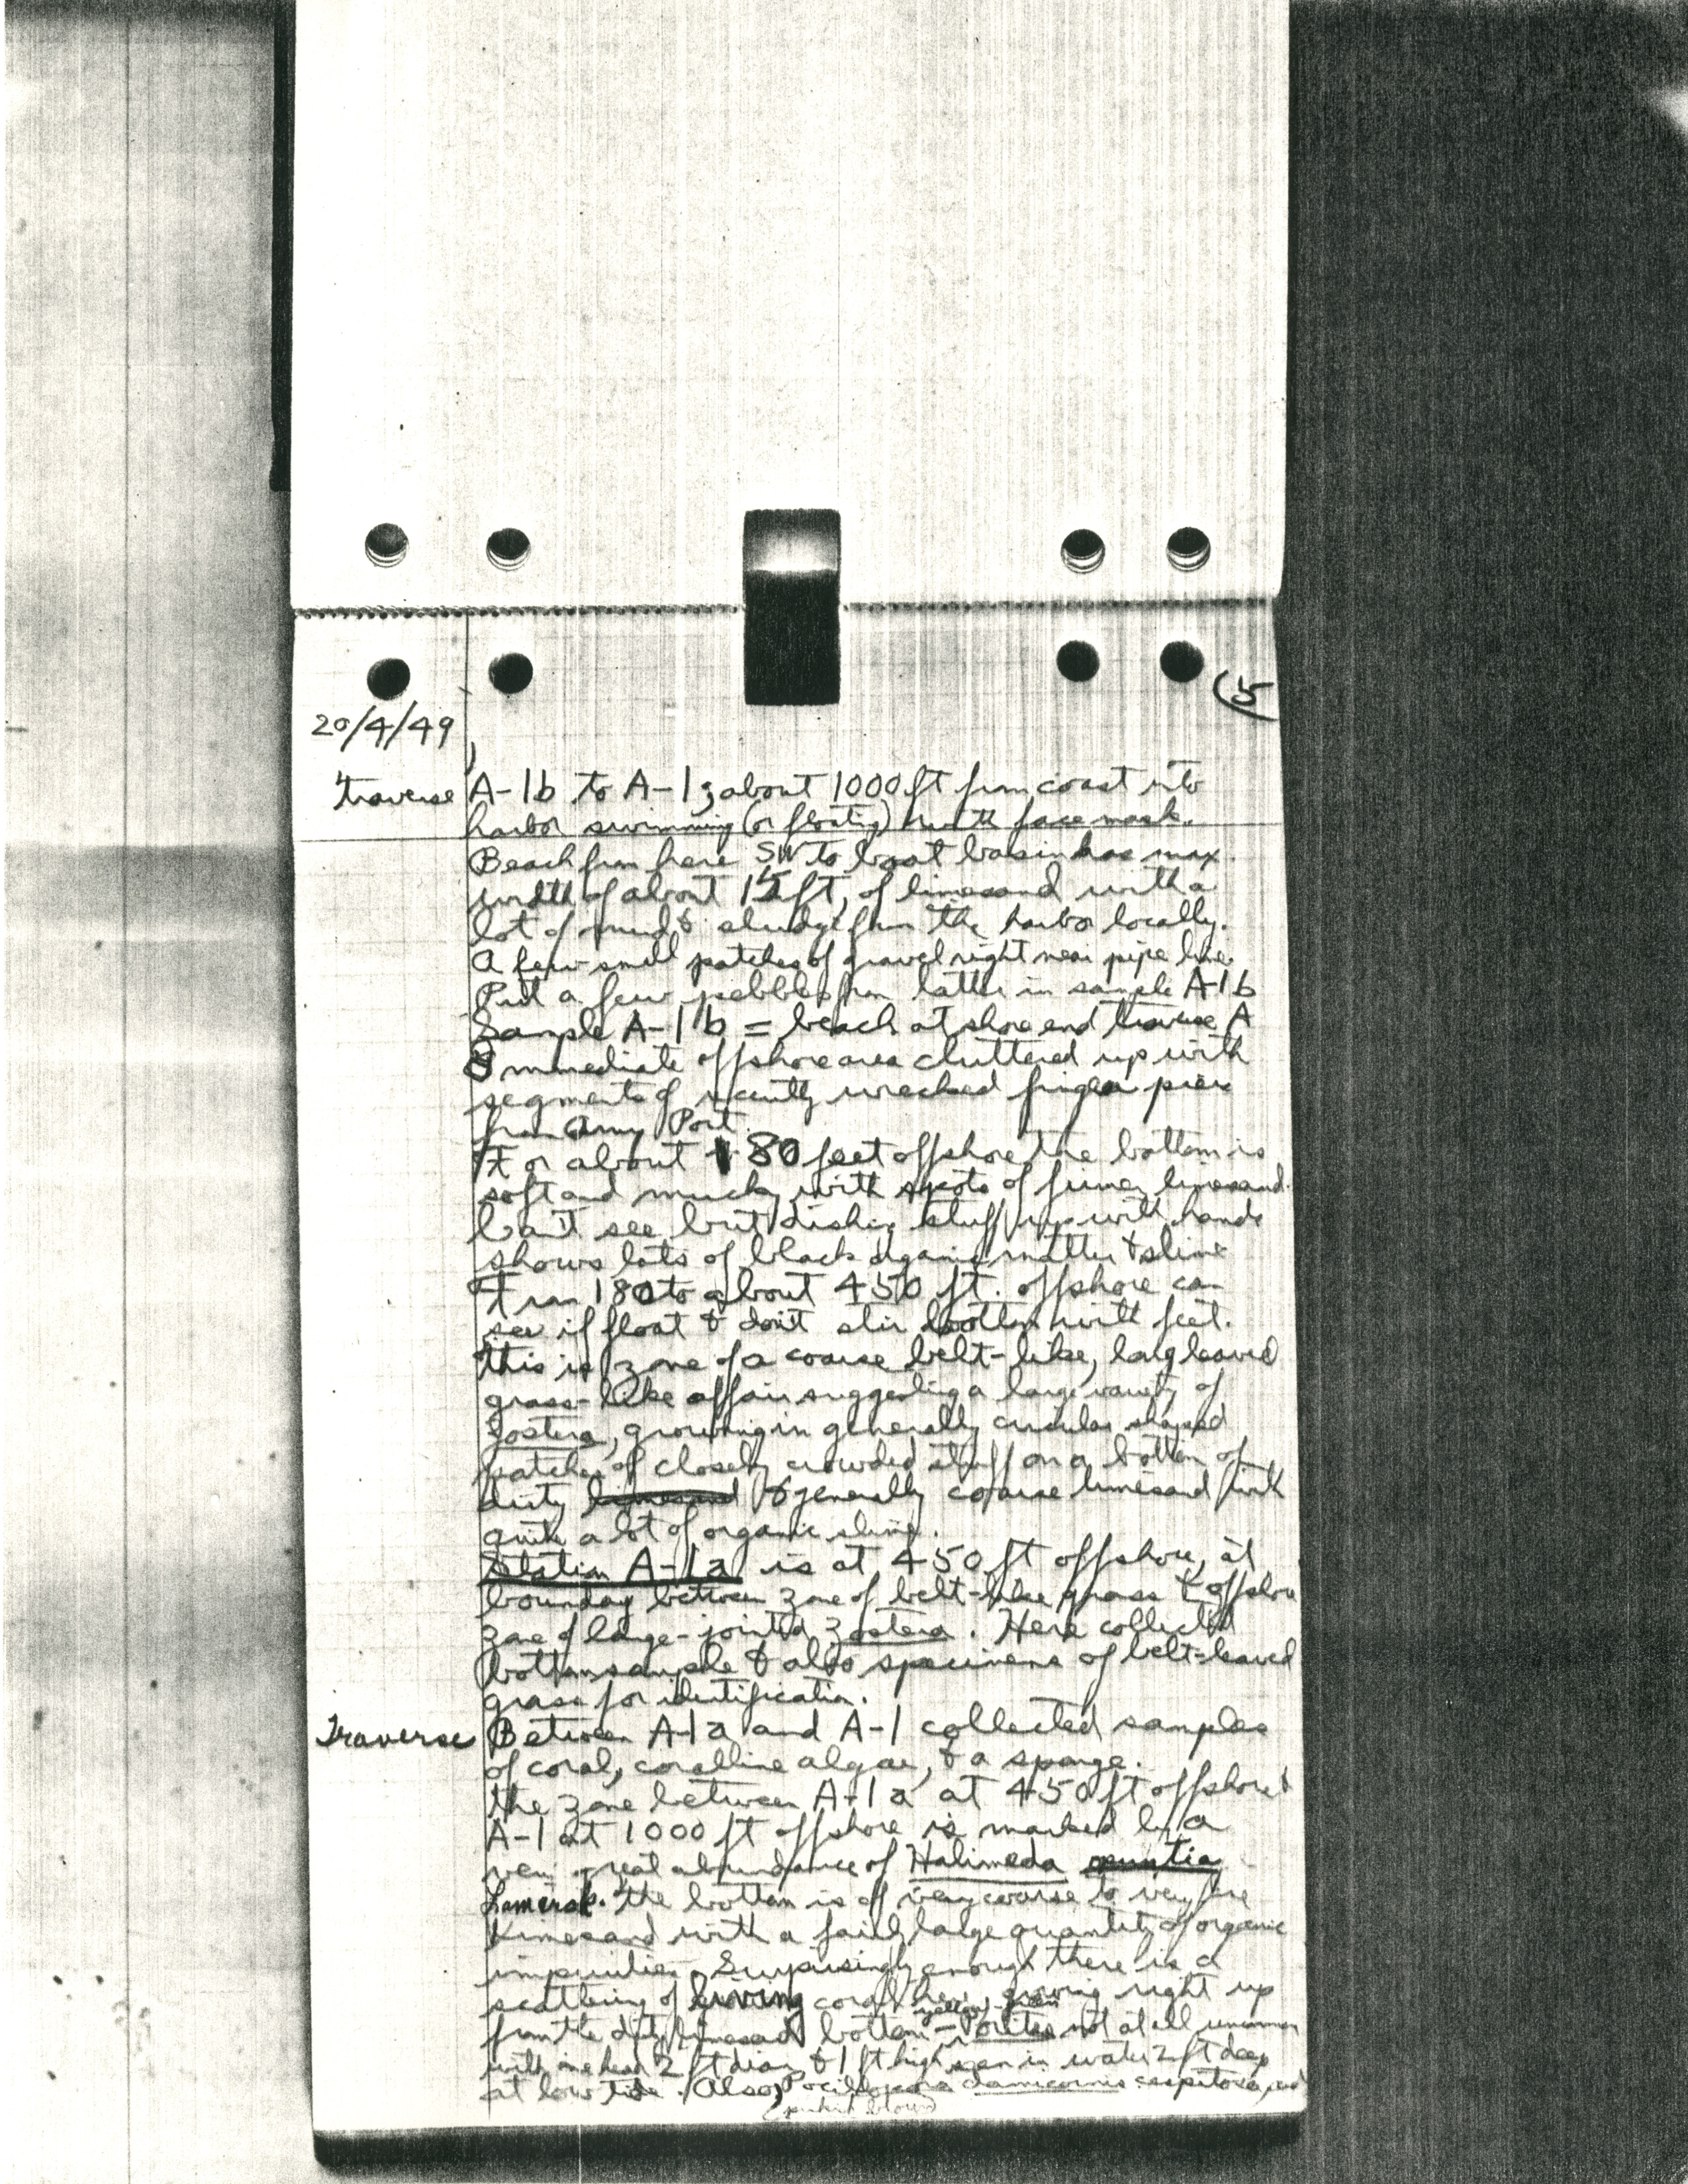 (5
20/4/49
traverse A-1b to A-1; about 1000 ft from coast into
harbor swimming (or floating) with face mask.
Beach from here SW to boat basin has max.
width of about 15 ft, of limesand with a
lot of mud & sludge from the harbor locally.
A few small patches of gravel right near pipe line
Put a few pebbles from latter in sample A-1b
Sample A-1b = beach at shore end traverse A
Immediate offshore area cluttered up with
segments of recently wrecked finger pier
from Army Port.
For about 180 feet offshore the bottom is
soft and mucky with spots of finer limesand.
Can't see but dishing stuff up with hands
shows lots of black organic matter & slime
From 180 to about 450 ft. offshore can
see if float & don't stir bottom with feet.
This is zone of a coarse belt-like, long leaved
grass-like affair suggesting a large variety of
Zostera, growing in generally circular shaped
patches of closely crowded stuff on a bottom of
dirty limesand & generally coarse limesand with
quite a lot of organic slime.
Station A-1a is at 450 ft offshore, at
boundary between zone of belt-like grass & offshore
zone of large-jointed Zostera. Here collected
bottom sample & also specimens of belt-leaved
grass for identification.
Traverse Between A-1a and A-1 collected samples
of coral, coralline algae, & a sponge.
The zone between A-1a at 450 ft offshore &
A-1 at 1000 ft offshore is marked by a
very great abundance of Halimeda opuntia
Lamarck. The bottom is of very coarse to very fine
limesand with a fairly large quantity of organic
impurities. Surprisingly enough there is a
scattering of living coral here, growing right up
from the dirty limesand bottom - yellow green Porites not at all uncommon
with one head 2 ft diam & 1 ft high seen in water 2 ft deep
at low tide. Also, Pocillopora damicornis cespitosa, and
(pinkish brown)